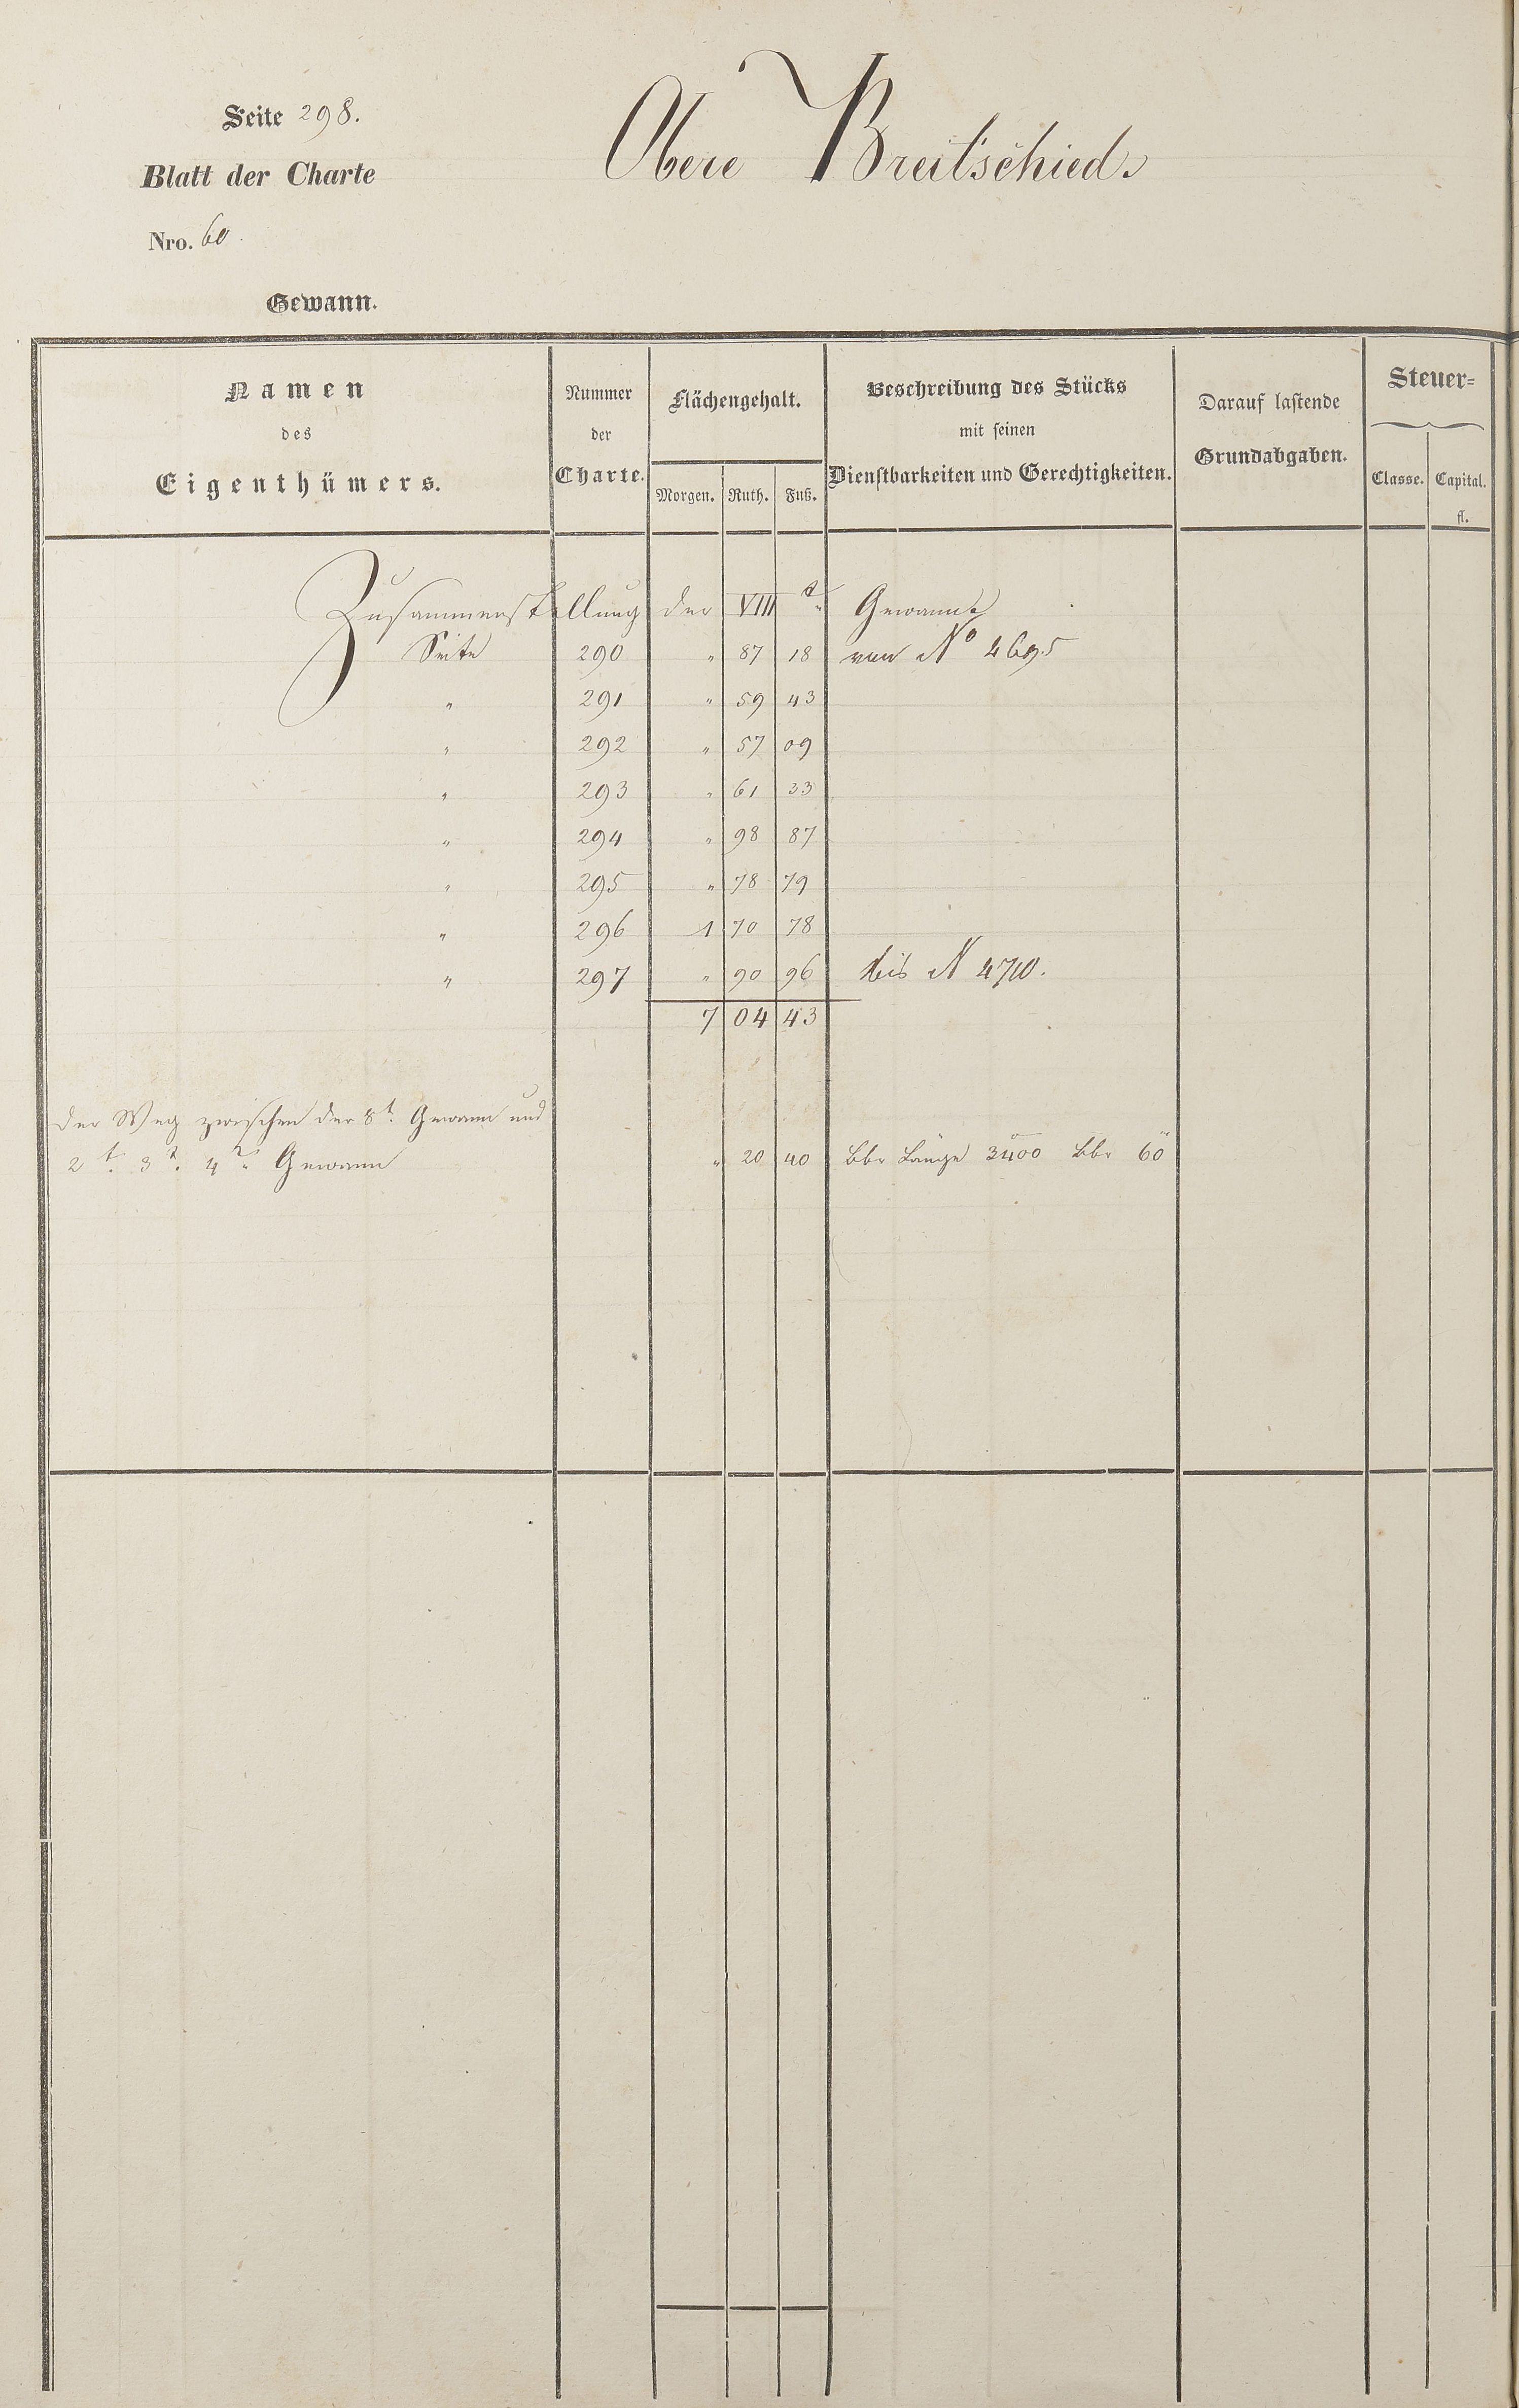 Seite 298.
Obere Breitschied.
Blatt der Charte
Nro. 60.
Gewann.
Namen
des
Eigenthümers.
Nummer
der
Charte.
Flächengehalt.
Morgen. Ruth. Fuß.
Beschreibung des Stücks
mit seinen
Dienstbarkeiten und Gerechtigkeiten.
Darauf lastende
Grundabgaben.
Steuer=
Classe. Capital.
fl.
Zusammenstellung der VIII t. Gewann.
Seite 290 " 87 18 von No 4695
" 291 " 59 43
" 292 " 57 09
" 293 " 61 33
" 294 " 98 87
" 295 " 78 79
" 296 1 70 78
" 297 " 90 96 bis N 4710.
7 04 43
Der Weg zwischen der 8t. Gewann und
2t. 3t. 4t. Gewann " 20 40 Länge 3400 60